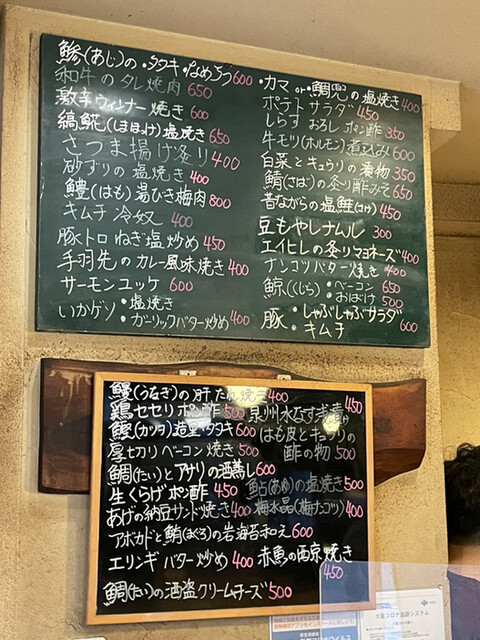 鯵(あじ)の・タタキ・なめろう600
和牛のタレ焼肉 650
激辛ウィンナー焼き 600
縞𩸽(しまほっけ)塩焼き 650
さつま揚げ炙り 400
砂ずりの塩焼き 400
鱧(はも)湯びき梅肉 800
キムチ冷奴 400
豚トロねぎ塩炒め 450
手羽先のカレー風味焼き 400
サーモンユッケ 600
いかゲソ・塩焼き
・ガーリックバター炒め 400
・カマ or・鯛兜の塩焼き 400
ポテトサラダ 450
しらすおろしポン酢 350
牛モツ(ホルモン)煮込み 600
白菜とキュウリの漬物 350
鯖(さばり)の炙り酢みそ 650
昔ながらの塩鮭(さけ) 450
豆もやしナムル 300
エイヒレの炙りマヨネーズ 400
ナンコツバター焼き 400
鯨(くじら)・ベーコン 650
・おばけ 500
豚・しゃぶしゃぶサラダ
・キムチ 600
鰻(うなぎ)の肝たん焼き 400
鶏セセリポン酢 500
鰹(カツヲ)造里・タタキ 600
厚切りベーコン焼き 500
鯛(たい)とアサリの酒蒸し 600
生くらげポン酢 450
あげの納豆サンド焼き 400
アボカドと鮪(まぐろ)の岩海苔和え 600
エリンギバター炒め 400
鯛(たい)の酒盗クリームチーズ 500
泉州水なす浅漬け 450
はも皮とキュウリの
酢の物 500
鮎(あゆ)の塩焼き 500
梅水晶(梅ナンコツ) 400
赤魚の西京焼き
450
大阪コロナ追跡システム